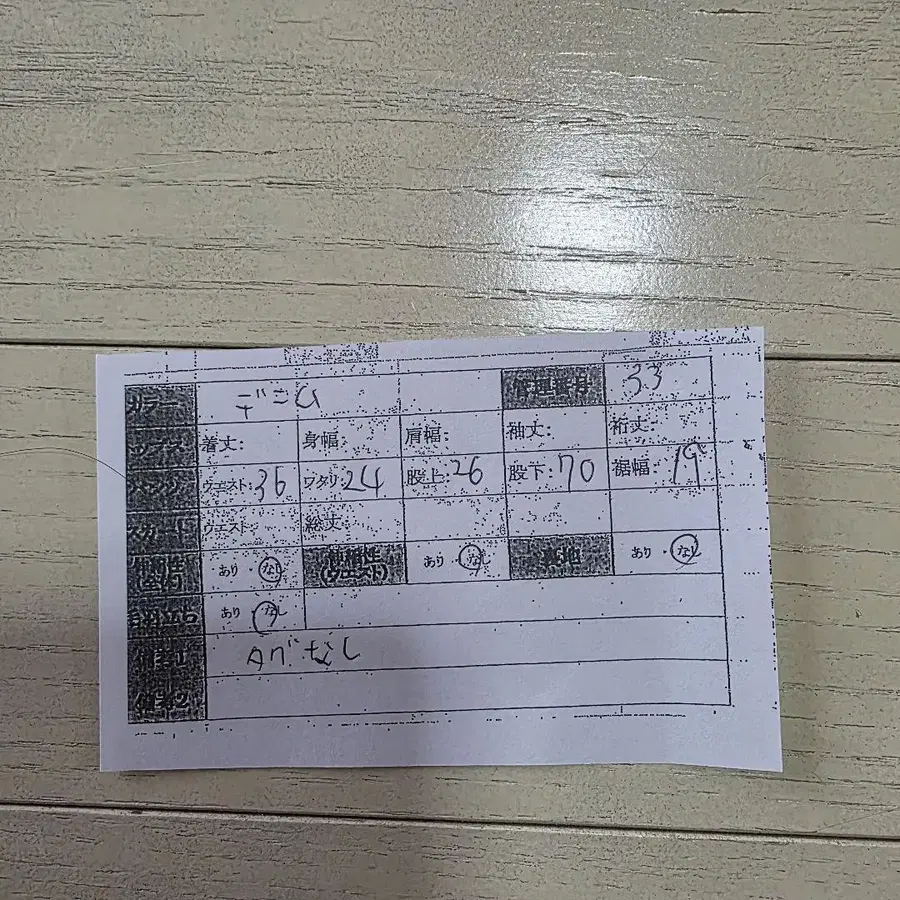 カラー デニム 管理番号 33
トップス 着丈: 身幅: 肩幅: 袖丈: 裄丈:
パンツ ウエスト:36 ワタリ:24 股上:26 股下:70 裾幅:19
スカート ウエスト: 総丈:
伸縮性(全内) あり・なし 伸縮性(ウエスト) あり・なし 裏地 あり・なし
あり・なし
備考1 タグなし
備考2